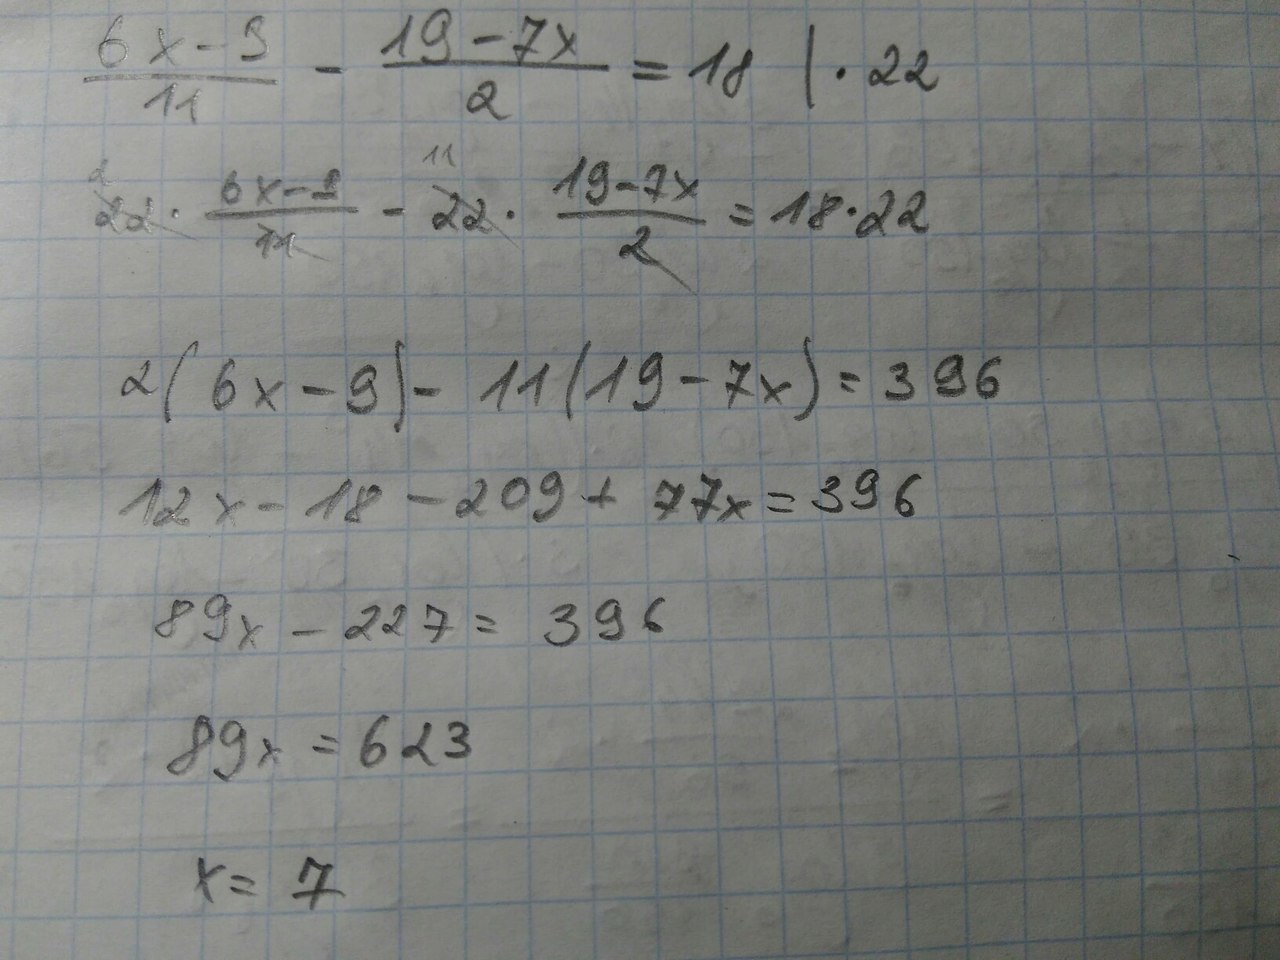 (6x-9)/11 - (19-7x)/2 = 18 | · 22
22 · (6x-9)/11 - 22 · (19-7x)/2 = 18·22
2(6x-9) - 11(19-7x) = 396
12x - 18 - 209 + 77x = 396
89x - 227 = 396
89x = 623
x = 7